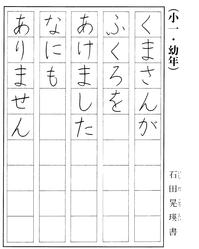 (小一・幼年)
くまさんが
ふくろを
あけました
なにも
ありません
石田晃瑛書